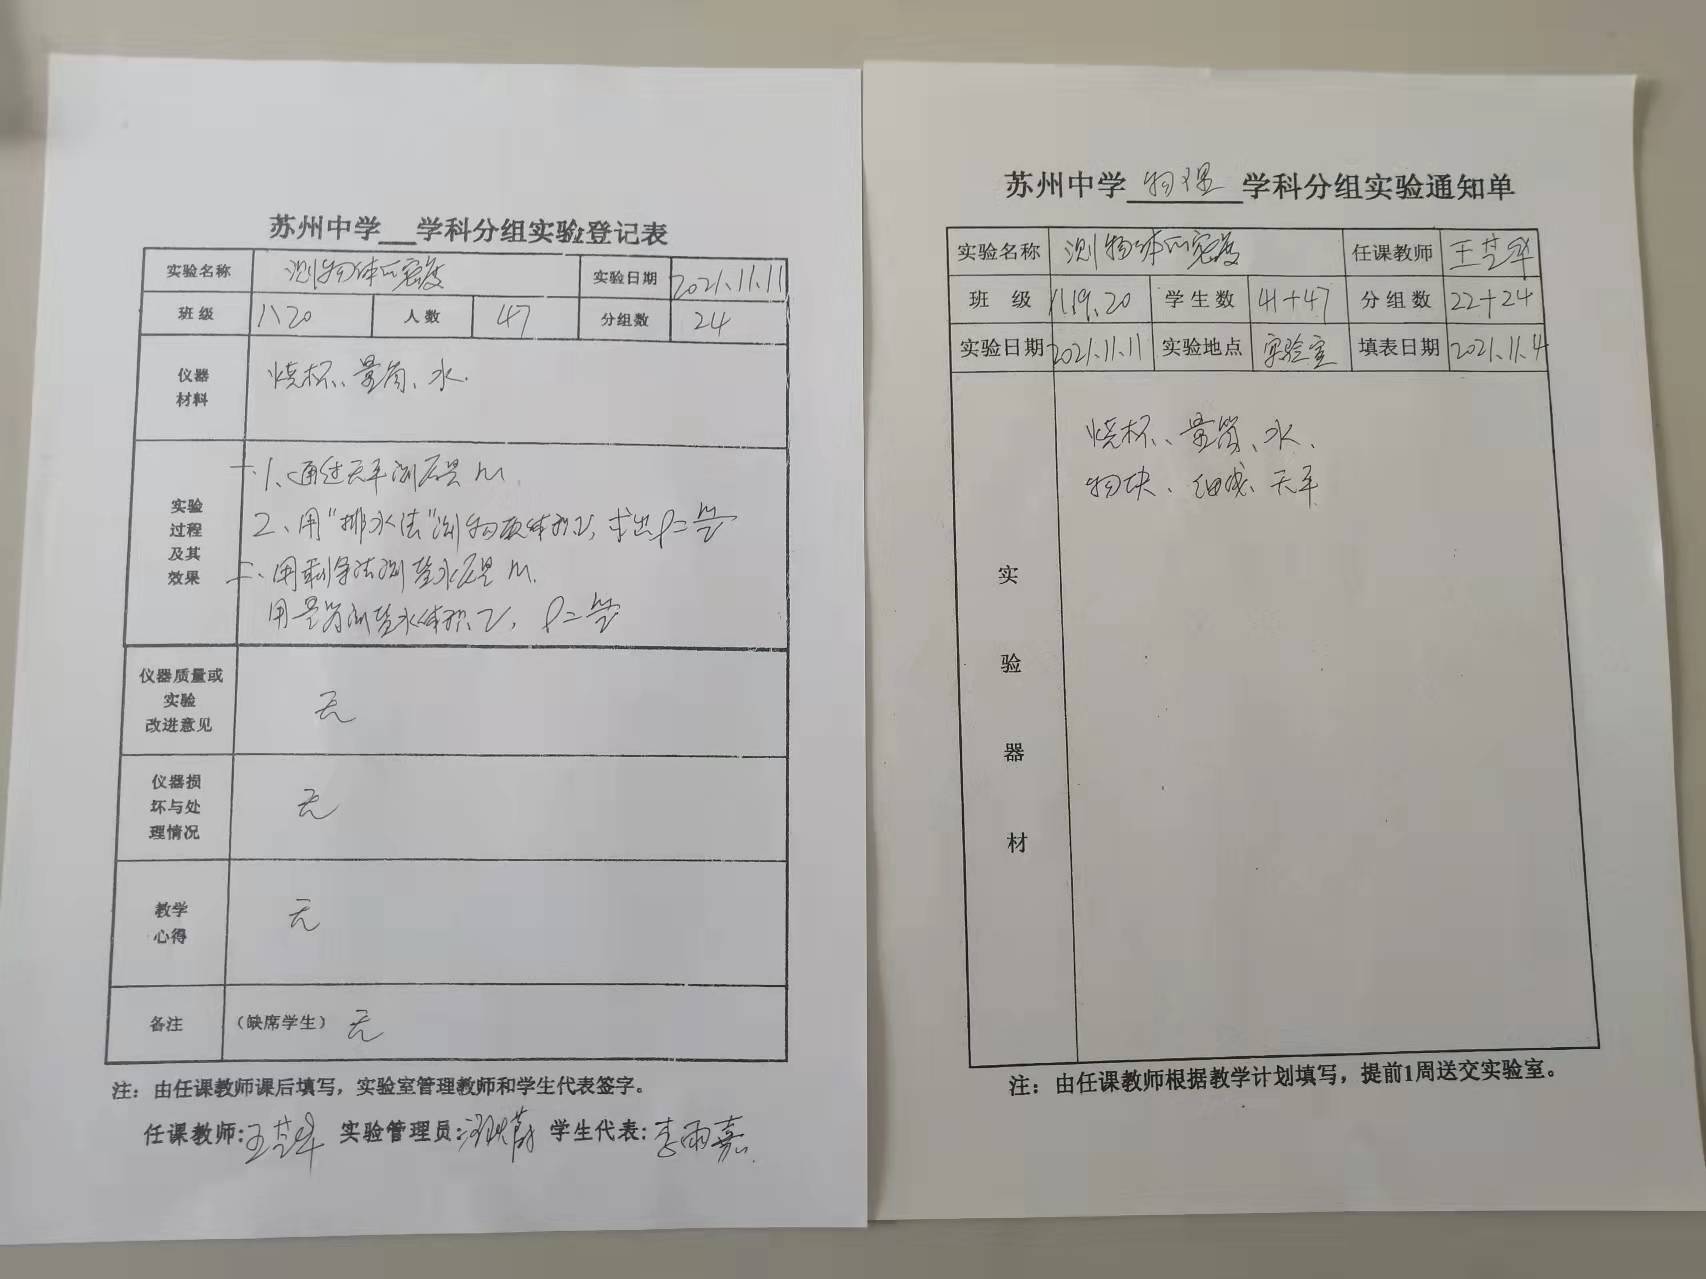 苏州中学 学科分组实验登记表
实验名称 测物体的密度 实验日期 2021.11.11
班级 八20 人数 47 分组数 24
仪器材料 烧杯、量筒、水.
实验过程及其效果
一.1、通过天平测质量m
2、用“排水法”测物质体积V, 求出ρ=m/V
二、用剩余法测盐水质量m.
用量筒测盐水体积V, ρ=m/V
仪器质量或实验改进意见 无
仪器损坏与处理情况 无
教学心得 无
备注 (缺席学生) 无
注：由任课教师课后填写，实验室管理教师和学生代表签字。
任课教师: 实验管理员: 学生代表:李雨嘉
苏州中学 物理 学科分组实验通知单
实验名称 测物体的密度 任课教师
班级 八19、20 学生数 41+47 分组数 22+24
实验日期 2021.11.11 实验地点 实验室 填表日期 2021.11.4
实验器材
烧杯、量筒、水、
物块、细线、天平
注：由任课教师根据教学计划填写，提前1周送交实验室。